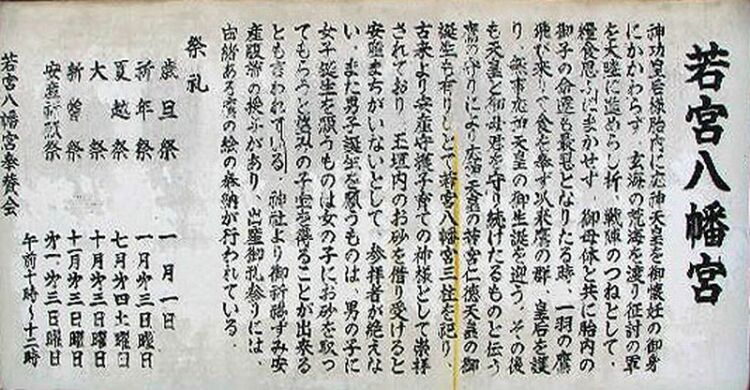 若宮八幡宮
神功皇后様胎内に応神天皇を御懐妊の御身
にかかわらず、玄海の荒海を渡り征討の軍
を大陸に進めらし折、戦陣のつねとして、
糧食思ふにまかせず、御母体と共に胎内の
御子の命運も最悪となりたる時、一羽の鷹
飛び来りて食を奉ず以来鷹の群、皇后を護
り、無事応神天皇の御生誕を迎う。その後
も天皇と御母君を守り続けたるものと伝う
鷹の守りにより応神天皇の若宮仁徳天皇の御
誕生も有りしとて若宮八幡宮三柱を祀り、
古来より安産守護子育ての神様として崇拝
されており、玉垣内のお砂を借り受けると
安産まちがいないとして、参拝者が絶えな
い、また男子誕生を願うものは、男の子に
女子誕生を願うものは女の子にお砂を取っ
てもらうと望みの子宝を得ることが出来る
とも言われている。神社より御祈祷ずみ安
産腹帯の授与があり、出産御礼参りには、
由緒ある鷹の絵の奉納が行われている。
祭礼
歳旦祭 一月一日
祈年祭 一月第三日曜日
夏越祭 七月第四土曜日
大祭 十月第三日曜日
新嘗祭 十一月第三日曜日
安産祈願祭 第一、第三日曜日
午前十時〜十二時
若宮八幡宮奉賛会